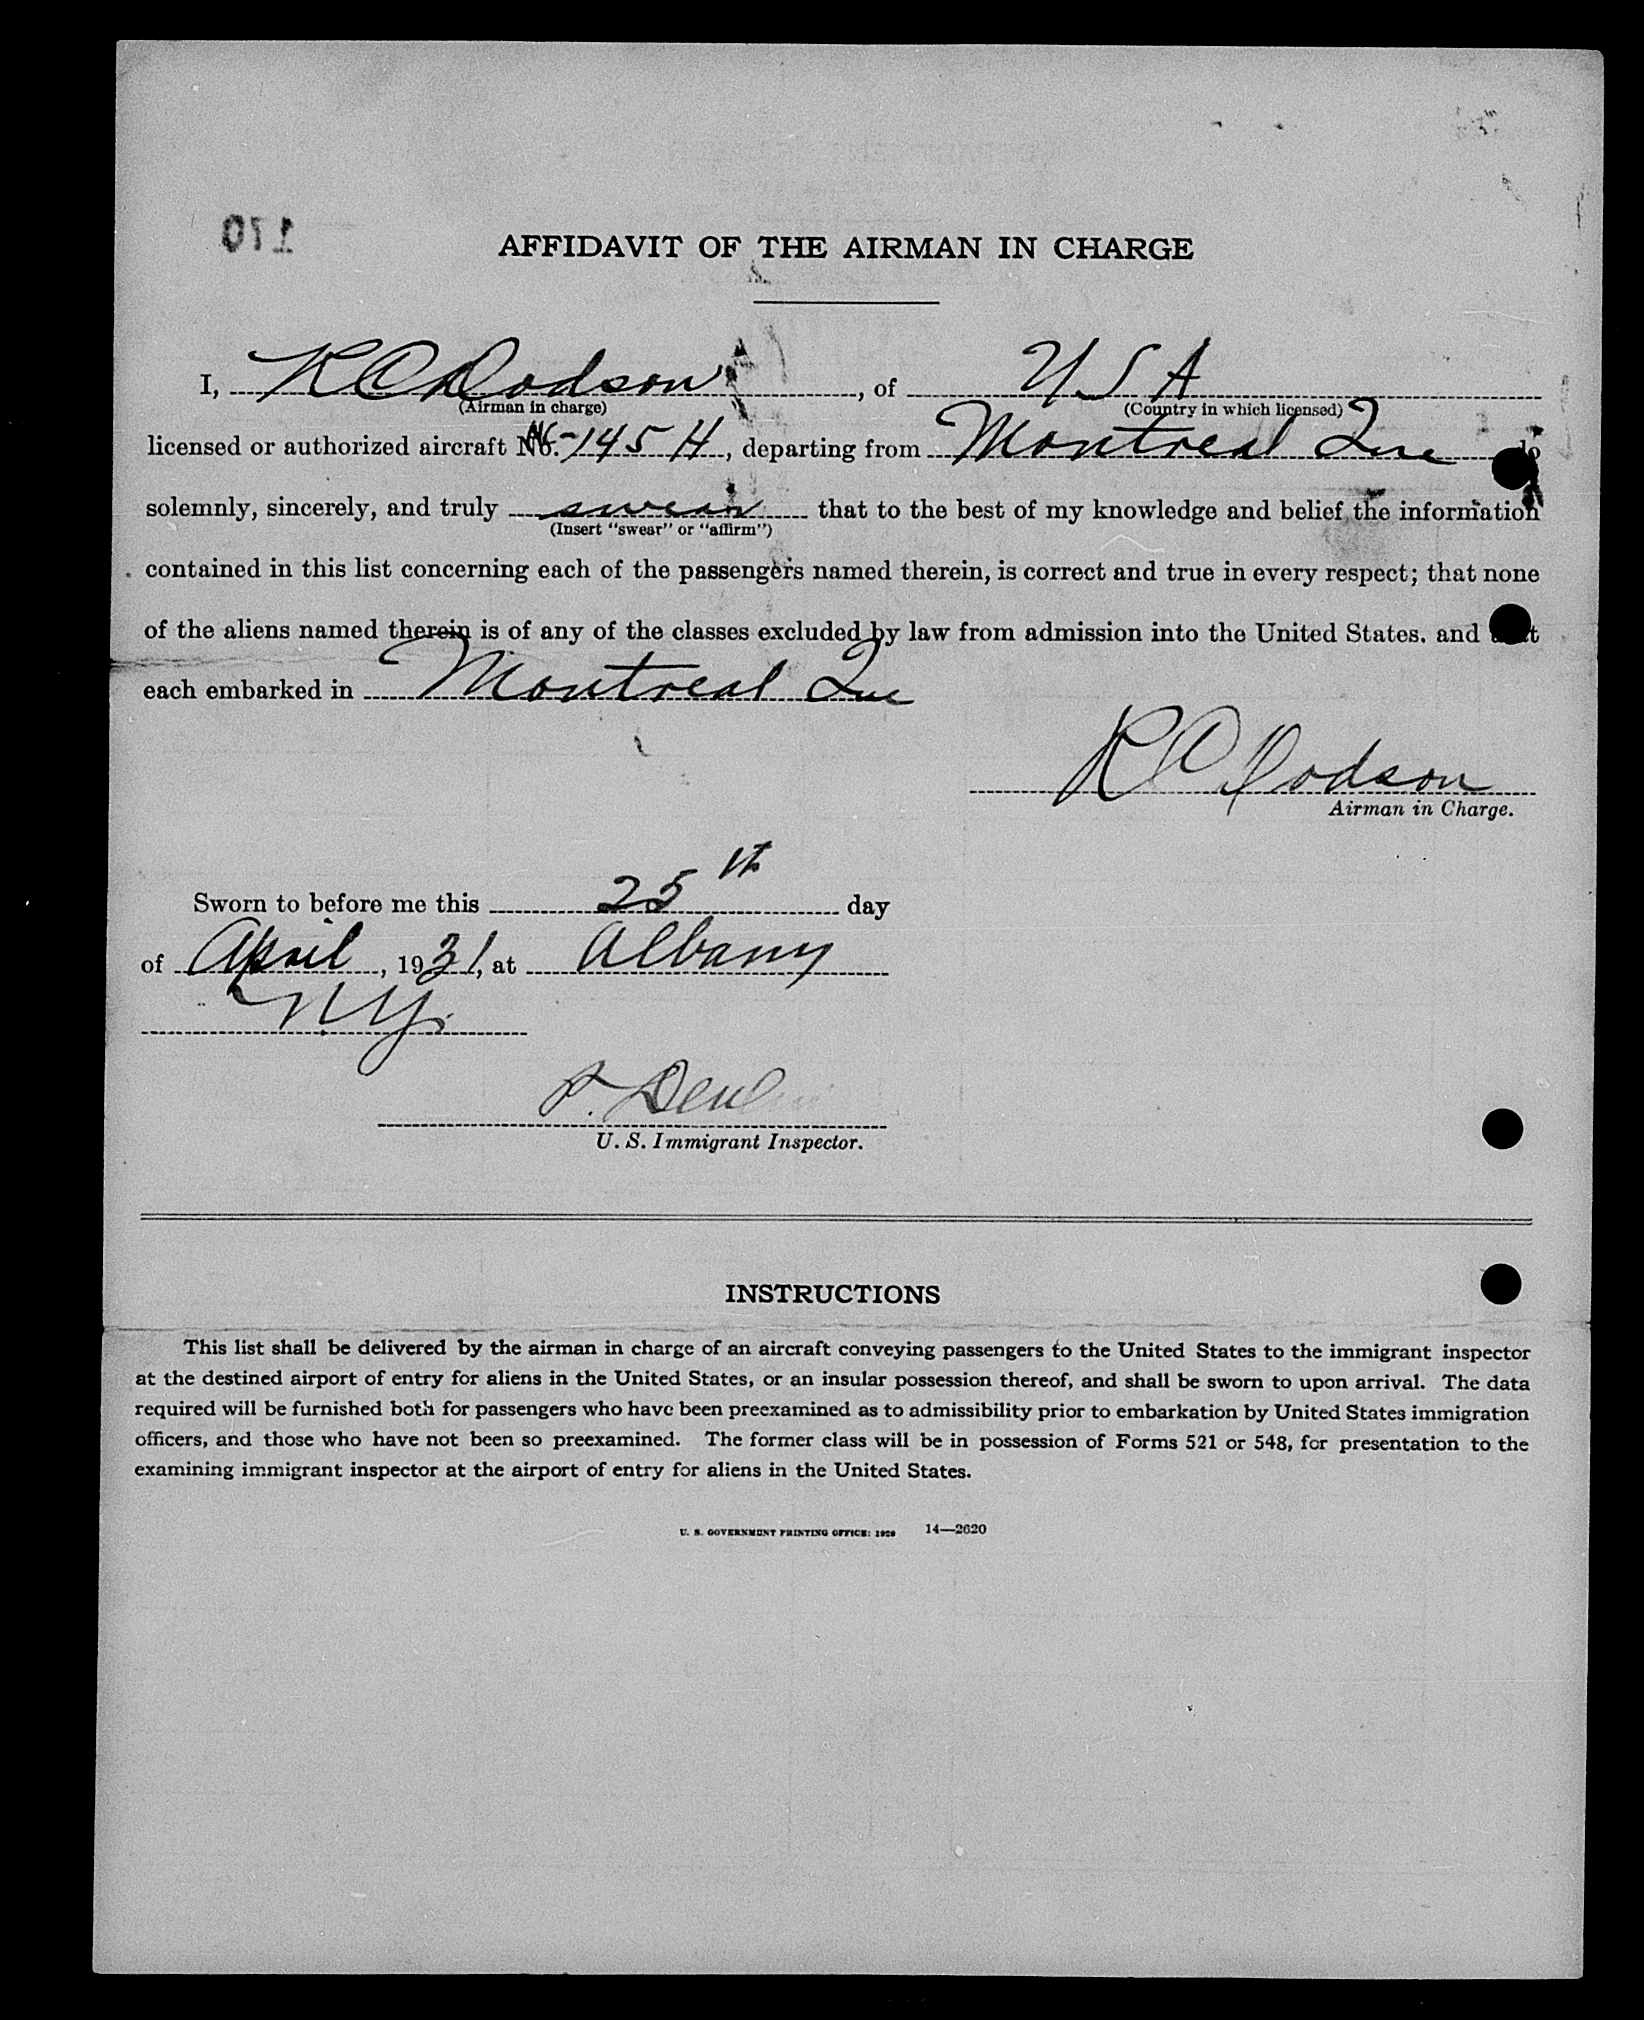 170
AFFIDAVIT OF THE AIRMAN IN CHARGE
I, R C Dodson, of U S A
(Airman in charge) (Country in which licensed)
licensed or authorized aircraft No. NC-145 H, departing from Montreal Que do
solemnly, sincerely, and truly swear that to the best of my knowledge and belief the information
(Insert "swear" or "affirm")
contained in this list concerning each of the passengers named therein, is correct and true in every respect; that none
of the aliens named therein is of any of the classes excluded by law from admission into the United States. and that
each embarked in Montreal Que
R C Dodson
Airman in Charge.
Sworn to before me this 25th day
of April, 1931, at Albany
N.Y.
P.
U. S. Immigrant Inspector.
INSTRUCTIONS
This list shall be delivered by the airman in charge of an aircraft conveying passengers to the United States to the immigrant inspector
at the destined airport of entry for aliens in the United States, or an insular possession thereof, and shall be sworn to upon arrival. The data
required will be furnished both for passengers who have been preexamined as to admissibility prior to embarkation by United States immigration
officers, and those who have not been so preexamined. The former class will be in possession of Forms 521 or 548, for presentation to the
examining immigrant inspector at the airport of entry for aliens in the United States.
U. S. GOVERNMENT PRINTING OFFICE: 1929 14—2620